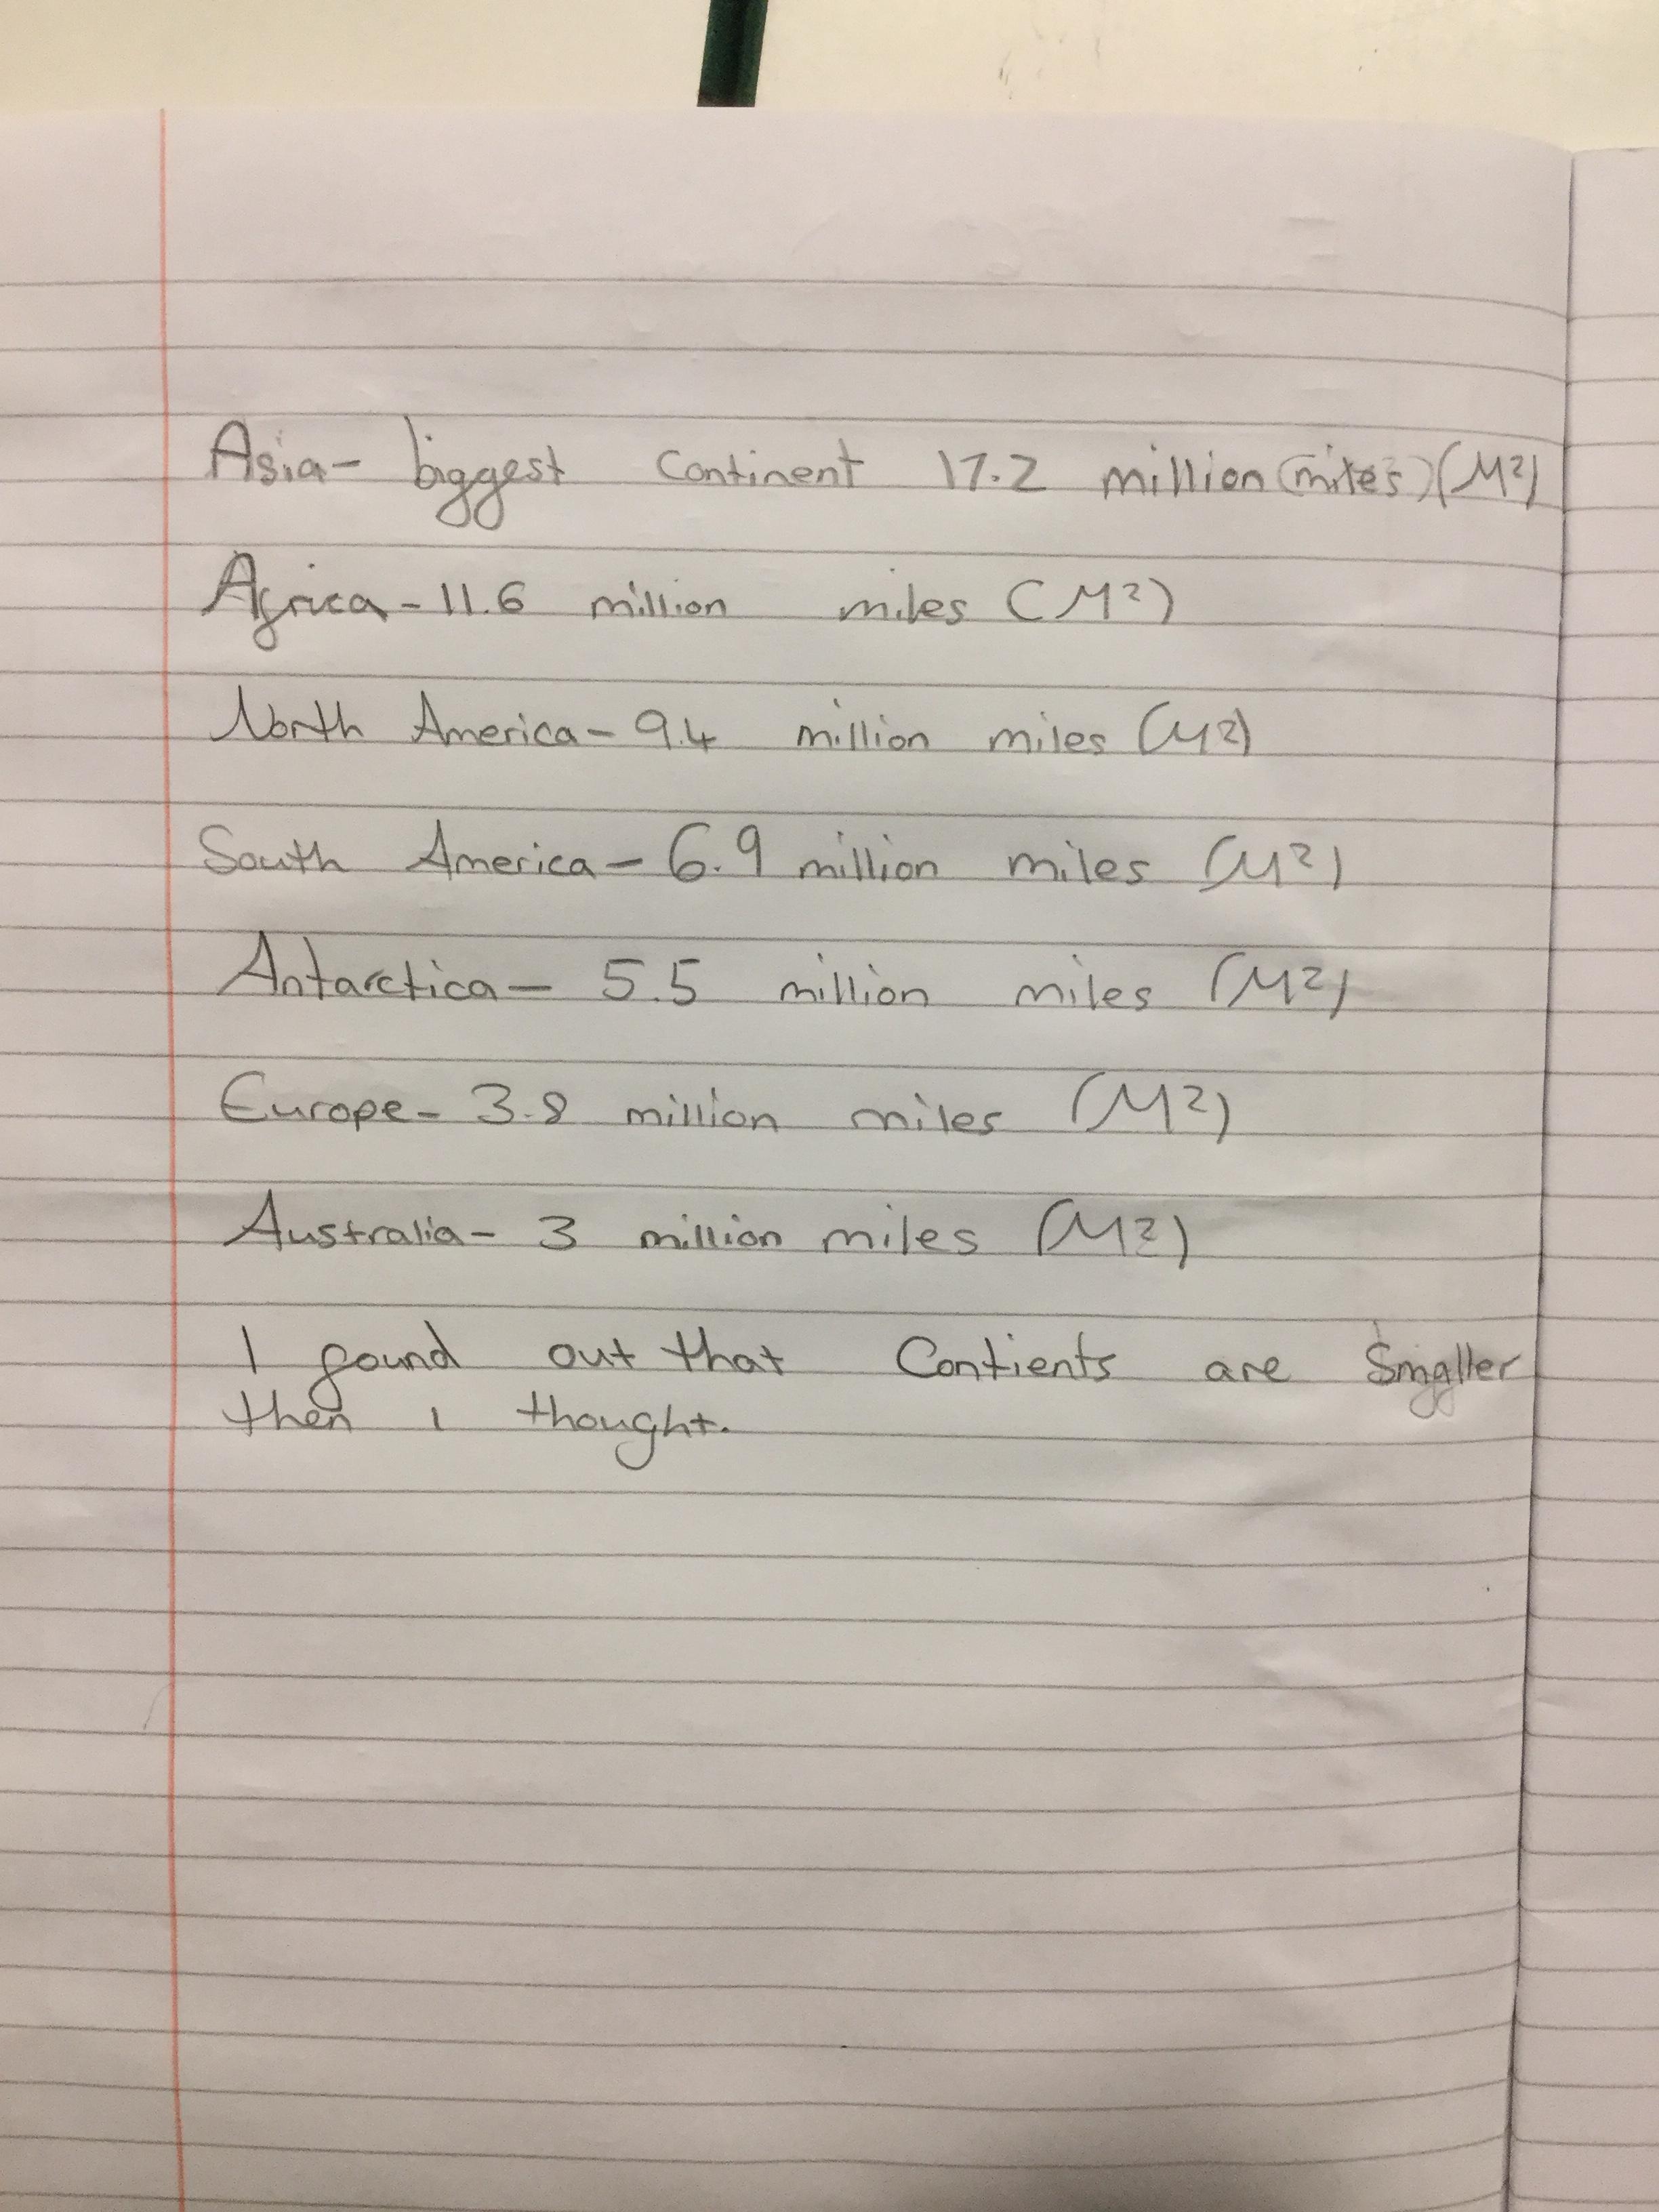 Asia- biggest continent 17.2 million (miles²) (M²)
Africa - 11.6 million miles (M²)
North America - 9.4 million miles (M²)
South America - 6.9 million miles (M²)
Antarctica - 5.5 million miles (M²)
Europe - 3.8 million miles (M²)
Australia - 3 million miles (M²)
I found out that Contients are Smaller
then i thought.